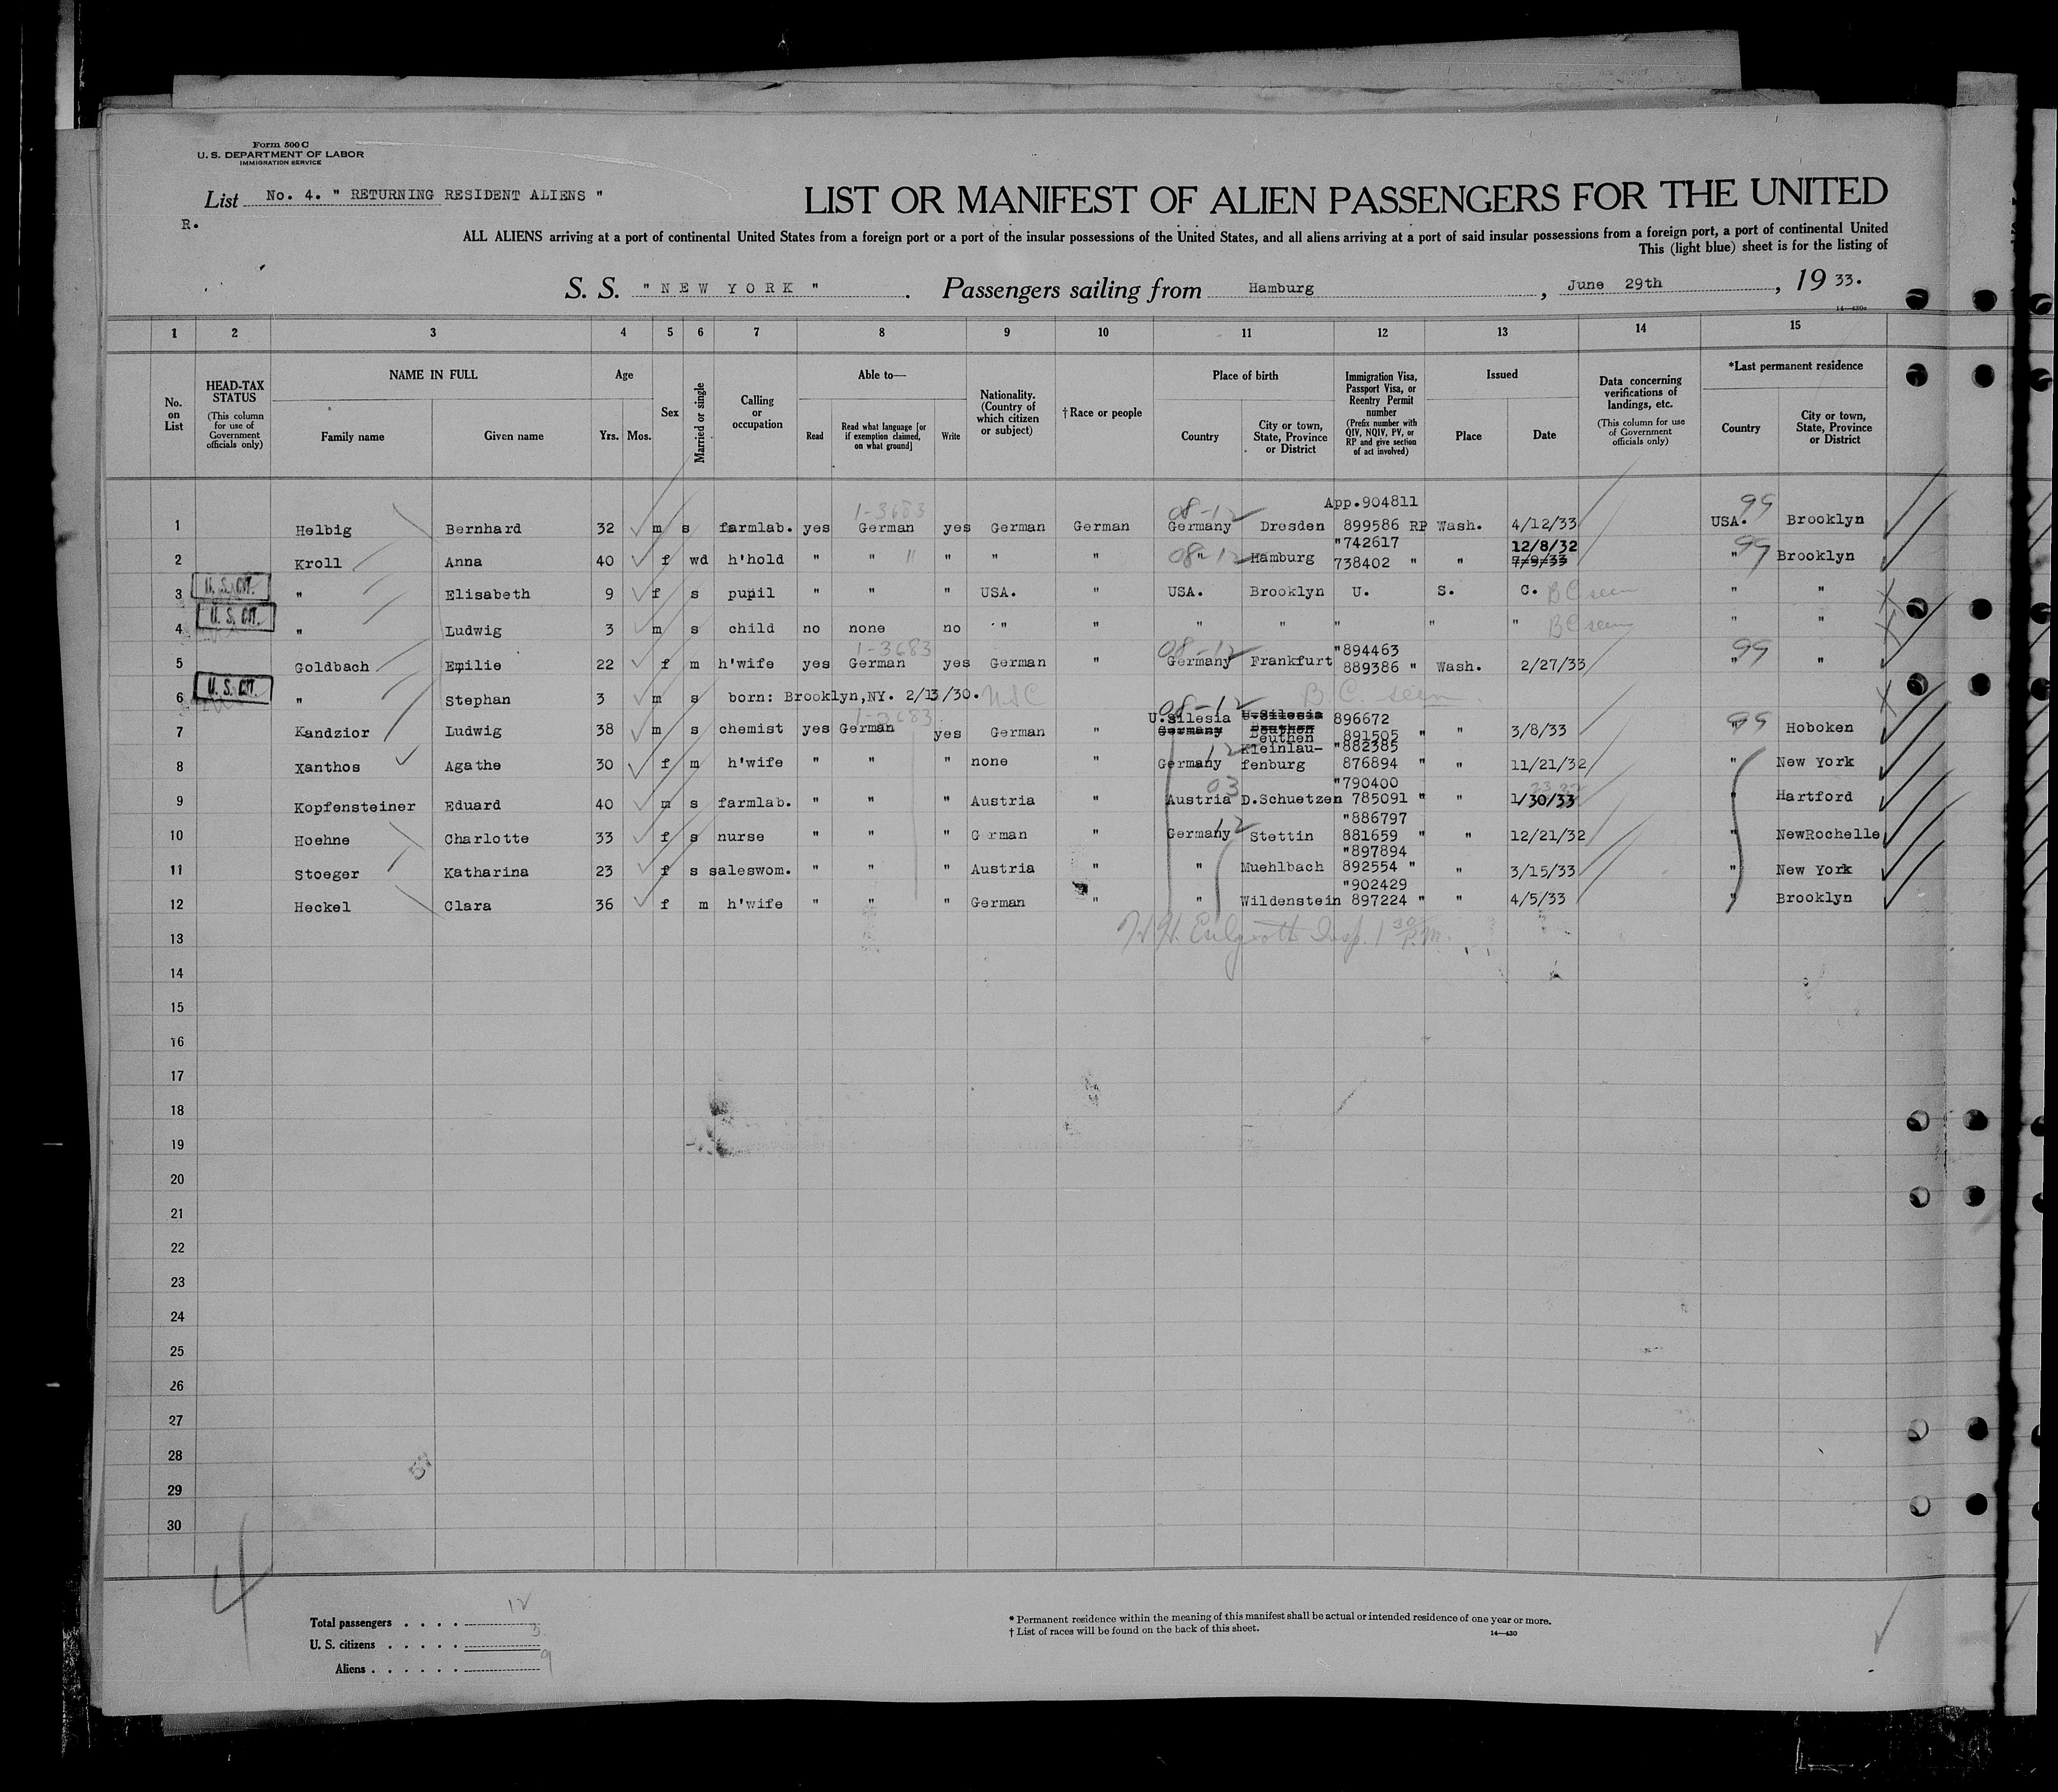 Form 500 C
U. S. DEPARTMENT OF LABOR
IMMIGRATION SERVICE
List No. 4. " RETURNING RESIDENT ALIENS "
R.
LIST OR MANIFEST OF ALIEN PASSENGERS FOR THE UNITED
ALL ALIENS arriving at a port of continental United States from a foreign port or a port of the insular possessions of the United States, and all aliens arriving at a port of said insular possessions from a foreign port, a port of continental United
This (light blue) sheet is for the listing of
S. S. " N E W Y O R K " . Passengers sailing from Hamburg , June 29th , 19 33.
14—430c
1 2 3 4 5 6 7 8 9 10 11 12 13 14 15
No. on List
HEAD-TAX STATUS (This column for use of Government officials only)
NAME IN FULL Family name Given name
Age Yrs. Mos.
Sex
Married or single
Calling or occupation
Able to— Read Read what language [or if exemption claimed, on what ground] Write
Nationality. (Country of which citizen or subject)
† Race or people
Place of birth Country City or town, State, Province or District
Immigration Visa, Passport Visa, or Reentry Permit number (Prefix number with QIV, NQIV, PV, or RP and give section of act involved)
Issued Place Date
Data concerning verifications of landings, etc. (This column for use of Government officials only)
*Last permanent residence Country City or town, State, Province or District
1-3683 08-12 App.904811 99
1 Helbig Bernhard 32 m s farmlab. yes German yes German German Germany Dresden 899586 RP Wash. 4/12/33 USA. Brooklyn
"742617 12/8/32
2 Kroll Anna 40 f wd h'hold " " " " " " 08-12 Hamburg 738402 " " 7/9/33 " 99 Brooklyn
3 U. S. CIT. " Elisabeth 9 f s pupil " " " USA. " USA. Brooklyn U. S. C. BC seen " "
4 U. S. CIT. " Ludwig 3 m s child no none no " " " " " " " BC seen " "
1-3683 08-12 "894463 99
5 Goldbach Emilie 22 f m h'wife yes German yes German " Germany Frankfurt 889386 " Wash. 2/27/33 " "
6 U. S. CIT. " Stephan 3 m s born: Brooklyn,NY. 2/13/30. USC B. C. seen
1-3683 08-12 U.Silesia U.Silesia 896672 99
7 Kandzior Ludwig 38 m s chemist yes German yes German " Germany Beuthen euthen 891505 " " 3/8/33 " Hoboken
12 Kleinlau- "882385
8 Xanthos Agathe 30 f m h'wife " " " none " Germany fenburg 876894 " " 11/21/32 " New York
03 "790400
9 Kopfensteiner Eduard 40 m s farmlab. " " " Austria " Austria D.Schuetzen 785091 " " 1/30/33 " Hartford
12 "886797
10 Hoehne Charlotte 33 f s nurse " " " German " Germany Stettin 881659 " " 12/21/32 " NewRochelle
"897894
11 Stoeger Katharina 23 f s saleswom. " " " Austria " " Muehlbach 892554 " " 3/15/33 " New York
"902429
12 Heckel Clara 36 f m h'wife " " " German " " Wildenstein 897224 " " 4/5/33 " Brooklyn
13 Insp. 1 30 P.M.
14
15
16
17
18
19
20
21
22
23
24
25
26
27
28
29
30
4
Total passengers . . . . 12
U. S. citizens . . . . . 3
Aliens . . . . . . 9
* Permanent residence within the meaning of this manifest shall be actual or intended residence of one year or more.
† List of races will be found on the back of this sheet.
14—430